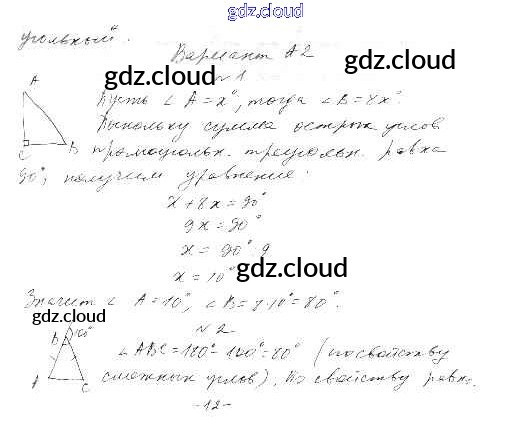 gdz.cloud
угольный".
Вариант А2
gdz.cloud
gdz.cloud
№1
A
Пусть ∠A = x°, тогда ∠B = 8x°.
Поскольку сумма острых углов
C B прямоугольн. треугольн. равна
90°, получим уравнение:
x + 8x = 90°
9x = 90°
x = 90°:9
x = 10°
gdz.cloud
Значит ∠A = 10°, ∠B = 8·10° = 80°.
gdz.cloud
№2
B 100°
∠ABC = 180° - 100° = 80° (по свойству
A C смежных углов). По свойству равн.
-12-
gdz.cloud